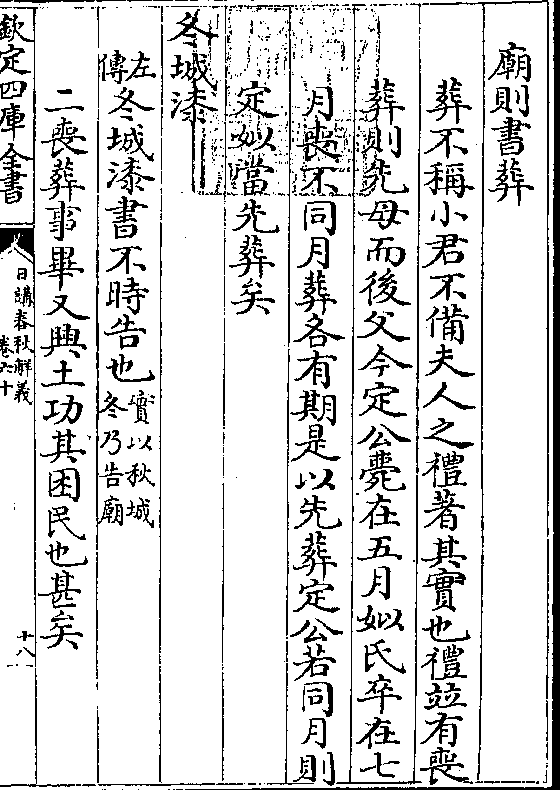 廟則書葬
葬不稱小君不備夫人之禮著其實也禮竝有喪
葬則先母而後父今定公薨在五月姒氏卒在七
月喪不同月葬各有期是以先葬定公若同月則
定姒當先葬矣
冬城漆
左傳冬城漆書不時告也實以秋城冬乃告廟
二喪葬事畢又興土功其困民也甚矣
欽定四庫全書
日講春秋解義
卷六十
十八